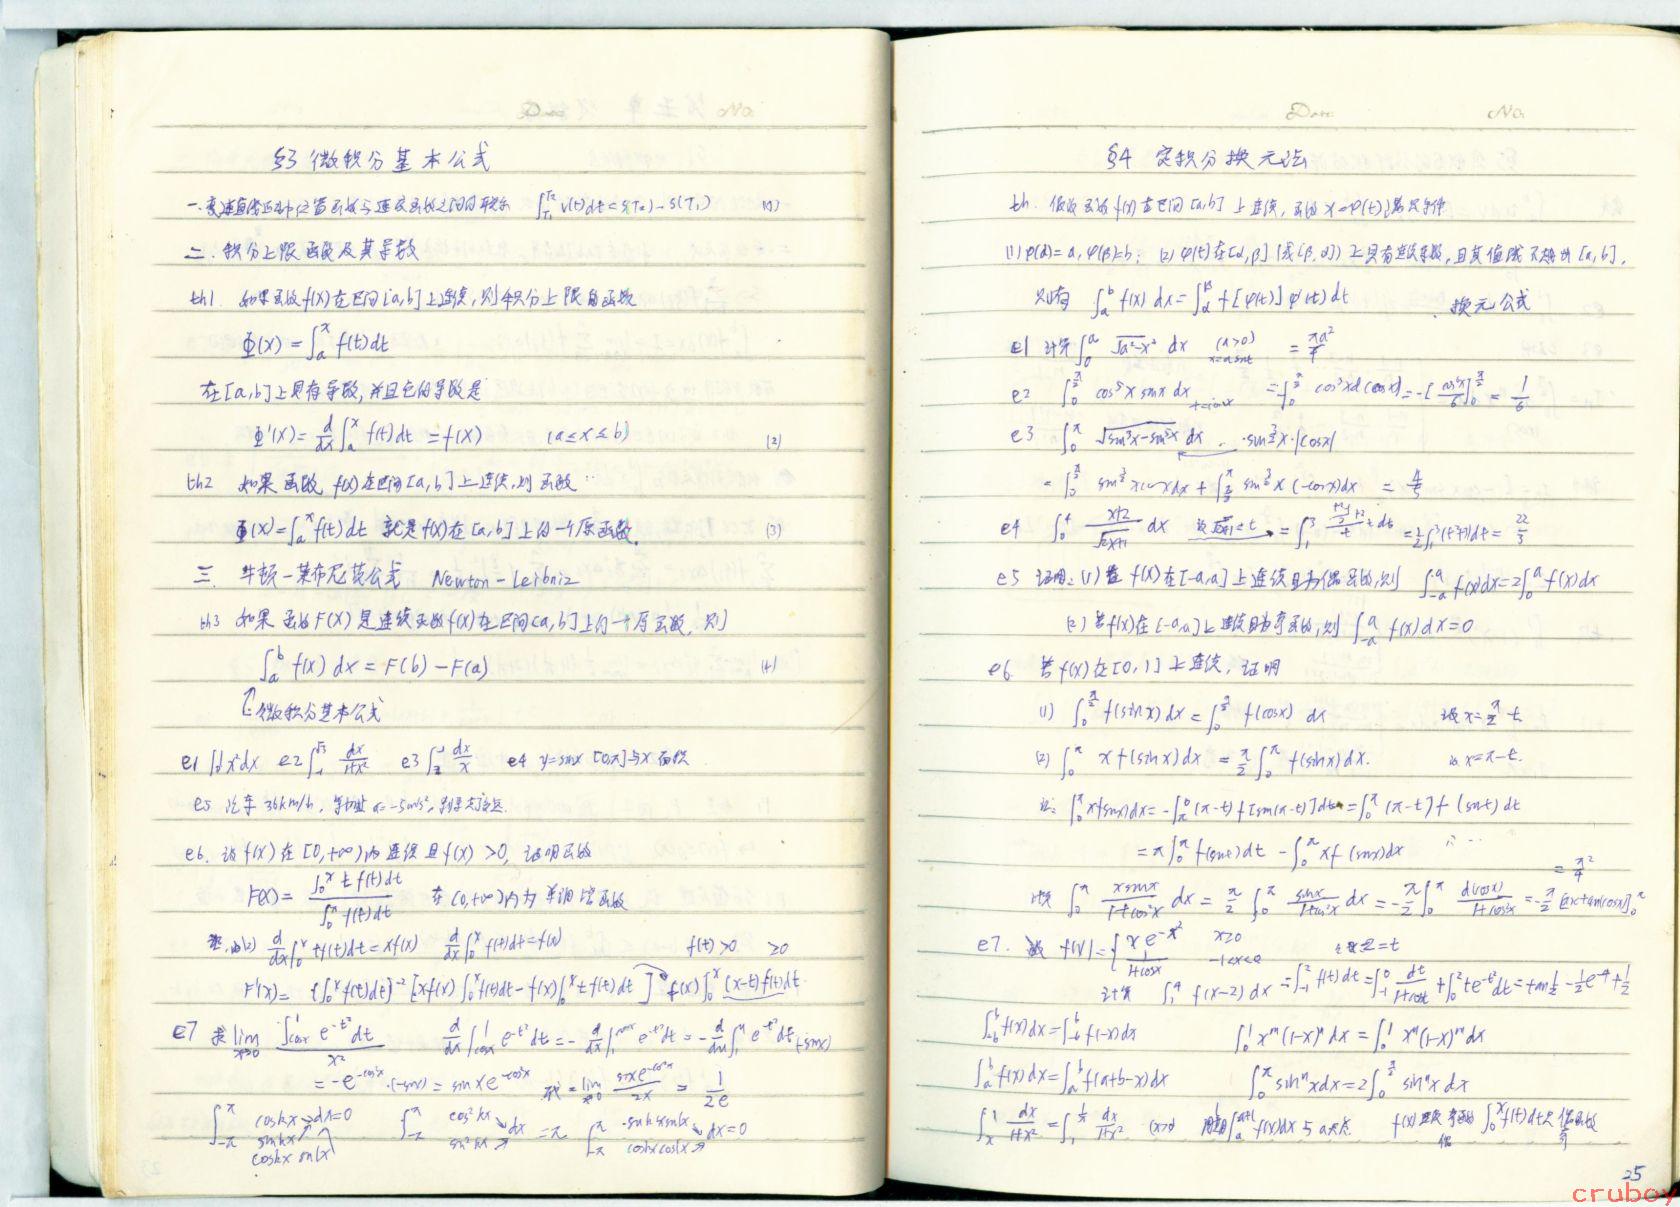 Date No.
§3 微积分基本公式
一.变速直线运动中位置函数与速度函数之间的联系 ∫_{T₁}^{T₂} v(t)dt = s(T₂) - s(T₁) (1)
二.积分上限函数及其导数
th1. 如果函数f(x)在区间[a,b]上连续,则积分上限的函数
Φ(x) = ∫_a^x f(t)dt
在[a,b]上具有导数,并且它的导数是
Φ'(x) = d/dx ∫_a^x f(t)dt = f(x) (a≤x≤b) (2)
th2 如果函数f(x)在区间[a,b]上连续,则函数
Φ(x) = ∫_a^x f(t)dt 就是f(x)在[a,b]上的一个原函数. (3)
三. 牛顿-莱布尼茨公式 Newton-Leibniz
th3 如果函数F(x)是连续函数f(x)在区间[a,b]上的一个原函数,则
∫_a^b f(x)dx = F(b) - F(a) (4)
微积分基本公式
e1 ∫_0^1 x²dx e2 ∫_{-1}^{√3} dx/(1+x²) e3 ∫_{-2}^{-1} dx/x e4 y=sinx [0,π]与x面积
e5 汽车 36km/h, a=-5m/s²,
e6. 设f(x)在[0,+∞)内连续且f(x)>0, 证明函数
F(x) = ∫_0^x t f(t)dt / ∫_0^x f(t)dt 在(0,+∞)内为单调增函数
d/dx ∫_0^x t f(t)dt = x f(x) d/dx ∫_0^x f(t)dt = f(x) f(t)>0 ≥0
F'(x) = (∫_0^x f(t)dt)^{-2} [x f(x) ∫_0^x f(t)dt - f(x) ∫_0^x t f(t)dt] f(x) ∫_0^x (x-t)f(t)dt.
e7 求 lim_{x→0} ∫_{cosx}^1 e^{-t²}dt / x² d/dx ∫_{cosx}^1 e^{-t²}dt = -d/dx ∫_1^{cosx} e^{-t²}dt = -d/du ∫_1^u e^{-t²}dt (-sinx)
= -e^{-cos²x}·(-sinx) = sinx e^{-cos²x} 原式 = lim_{x→0} sinx e^{-cos²x} / 2x = 1/2e
∫_{-π}^π coskx sinkx dx=0 coskx sinlx ∫_{-π}^π cos²kx sin²kx dx = π ∫_{-π}^π sinkx sinlx coskx coslx dx=0
Date No.
§4 定积分换元法
th. 假设函数f(x)在区间[a,b]上连续,函数x=φ(t)满足条件
(1) φ(α)=a, φ(β)=b; (2) φ(t)在[α,β](或[β,α])上具有连续导数,且其值域不越出[a,b],
则有 ∫_a^b f(x)dx = ∫_α^β f[φ(t)]φ'(t)dt 换元公式
e1 计算 ∫_0^a √(a²-x²) dx (a>0) x=asint = πa²/4
e2 ∫_0^{π/2} cos⁵x sinx dx t=cosx = -∫_0^{π/2} cos⁵x d(cosx) = -[cos⁶x/6]_0^{π/2} = 1/6
e3 ∫_0^π √(sin³x-sin⁵x) dx sin^{3/2}x·|cosx|
= ∫_0^{π/2} sin^{3/2}x cosx dx + ∫_{π/2}^π sin^{3/2}x (-cosx)dx = 4/5
e4 ∫_0^4 (x+2)/√(2x+1) dx 设√(2x+1)=t = ∫_1^3 ((t²-1)/2+2)/t · t dt = 1/2 ∫_1^3 (t²+3)dt = 22/3
e5 证明: (1) 若f(x)在[-a,a]上连续且为偶函数,则 ∫_{-a}^a f(x)dx = 2∫_0^a f(x)dx
(2) 若f(x)在[-a,a]上连续且为奇函数,则 ∫_{-a}^a f(x)dx = 0
e6. 若f(x)在[0,1]上连续, 证明
(1) ∫_0^{π/2} f(sinx)dx = ∫_0^{π/2} f(cosx) dx 设x=π/2-t
(2) ∫_0^π x f(sinx)dx = π/2 ∫_0^π f(sinx)dx. 设x=π-t.
证: ∫_0^π x f(sinx)dx = -∫_π^0 (π-t)f[sin(π-t)]dt = ∫_0^π (π-t)f(sint)dt
= π∫_0^π f(sint)dt - ∫_0^π x f(sinx)dx
计算 ∫_0^π xsinx/(1+cos²x) dx = π/2 ∫_0^π sinx/(1+cos²x) dx = -π/2 ∫_0^π d(cosx)/(1+cos²x) = -π/2 [arctan(cosx)]_0^π = π²/4
e7. 设 f(x) = { xe^{-x²} x≥0 1/(1+cosx) -1<x<0 设x-2=t
计算 ∫_1^4 f(x-2)dx = ∫_{-1}^2 f(t)dt = ∫_{-1}^0 dt/(1+cost) + ∫_0^2 te^{-t²}dt = tan 1/2 - 1/2 e^{-4} + 1/2
∫_{-b}^b f(x)dx = ∫_{-b}^b f(-x)dx ∫_0^1 x^m(1-x)^n dx = ∫_0^1 x^n(1-x)^m dx
∫_a^b f(x)dx = ∫_a^b f(a+b-x)dx ∫_0^π sinⁿx dx = 2∫_0^{π/2} sinⁿx dx
∫_x^1 dx/(1+x²) = ∫_1^{1/x} dx/(1+x²) (x>0) ∫_a^{a+l} f(x)dx 与a无关 f(x) 奇函数 ∫_0^x f(t)dt 偶函数 偶 奇
25
cruboy